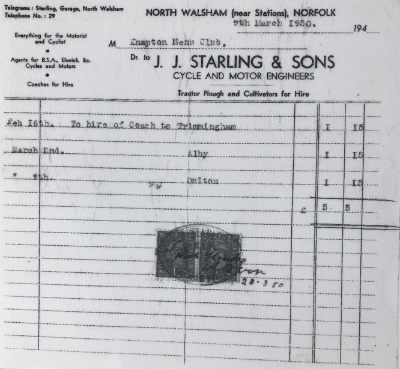 Telegrams : Starling, Garage, North Walsham
Telephone No. : 29
NORTH WALSHAM (near Stations), NORFOLK
9th March 1950. 194
Everything for the Motorist
and Cyclist
M Knapton Mens Club.
Agents for B.S.A., Elswick, &c.
Cycles and Motors
Coaches for Hire
Dr. to J. J. STARLING & SONS
CYCLE AND MOTOR ENGINEERS
Tractor Plough and Cultivators for Hire
Feb 16th. To hire of Coach to Trimmingham 1 15
March 2nd. Alby 1 15
" 8th. " Dalton 1 15
£ 5 5
28.3.50